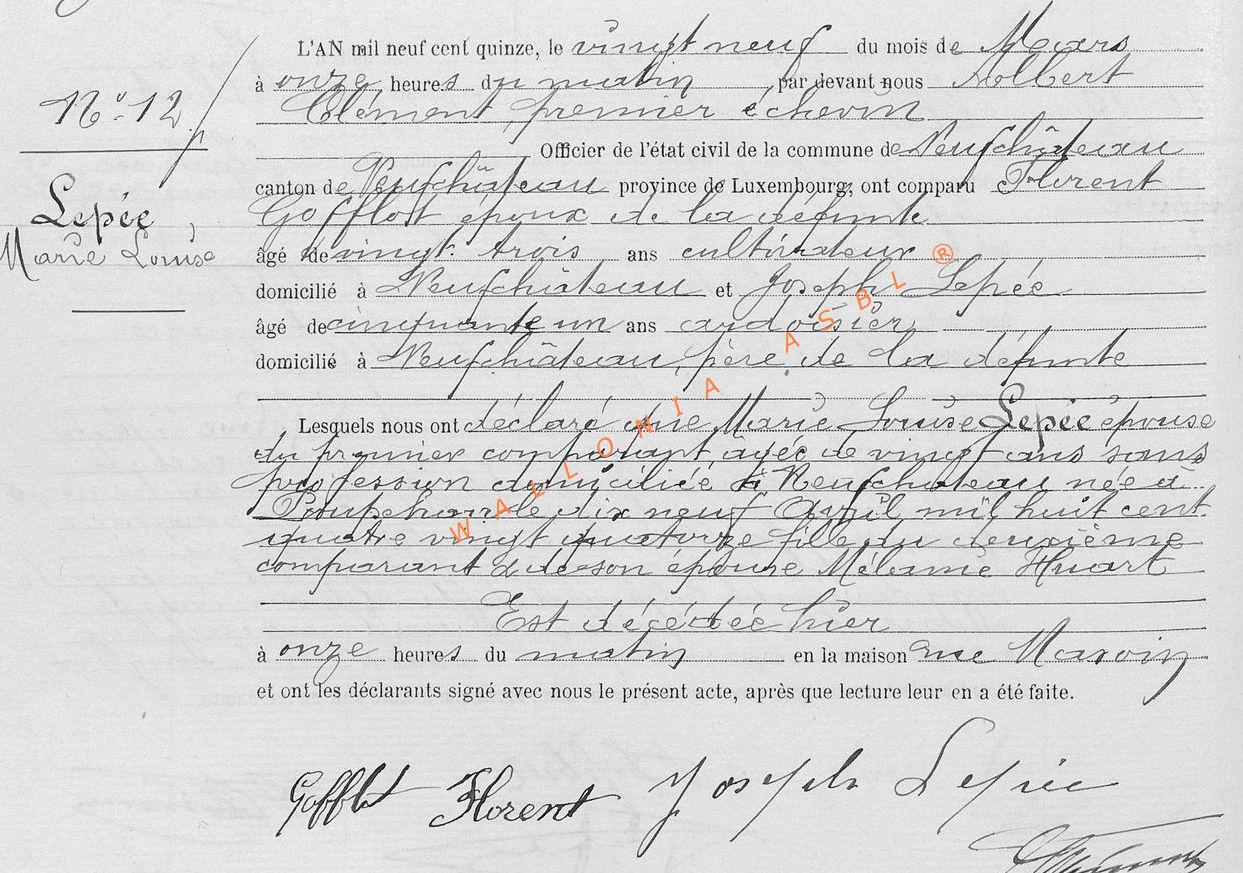 L'AN mil neuf cent quinze, le vingt neuf du mois de Mars
à onze heures du matin par devant nous Albert
Clément, premier échevin
N° 12
Officier de l'état civil de la commune de Neufchâteau
canton de Neufchâteau province de Luxembourg, ont comparu Florent
Gofflot époux de la défunte
Lepée
Marie Louise
âgé de vingt-trois ans cultivateur
domicilié à Neufchâteau et Joseph Lepée
âgé de cinquante un ans ardoisier
domicilié à Neufchâteau, père de la défunte
Lesquels nous ont déclaré que Marie Louise Lepée épouse
du premier comparant, âgée de vingt ans sans
profession domiciliée à Neufchateau née à
le dix neuf Avril mil huit cent
quatre vingt quatorze fille du deuxième
comparant & de son épouse Mélanie Huart
Est décédée hier
à onze heures du matin en la maison rue
et ont les déclarants signé avec nous le présent acte, après que lecture leur en a été faite.
Gofflot Florent Joseph Lepée
WALLONIA ASBL ®